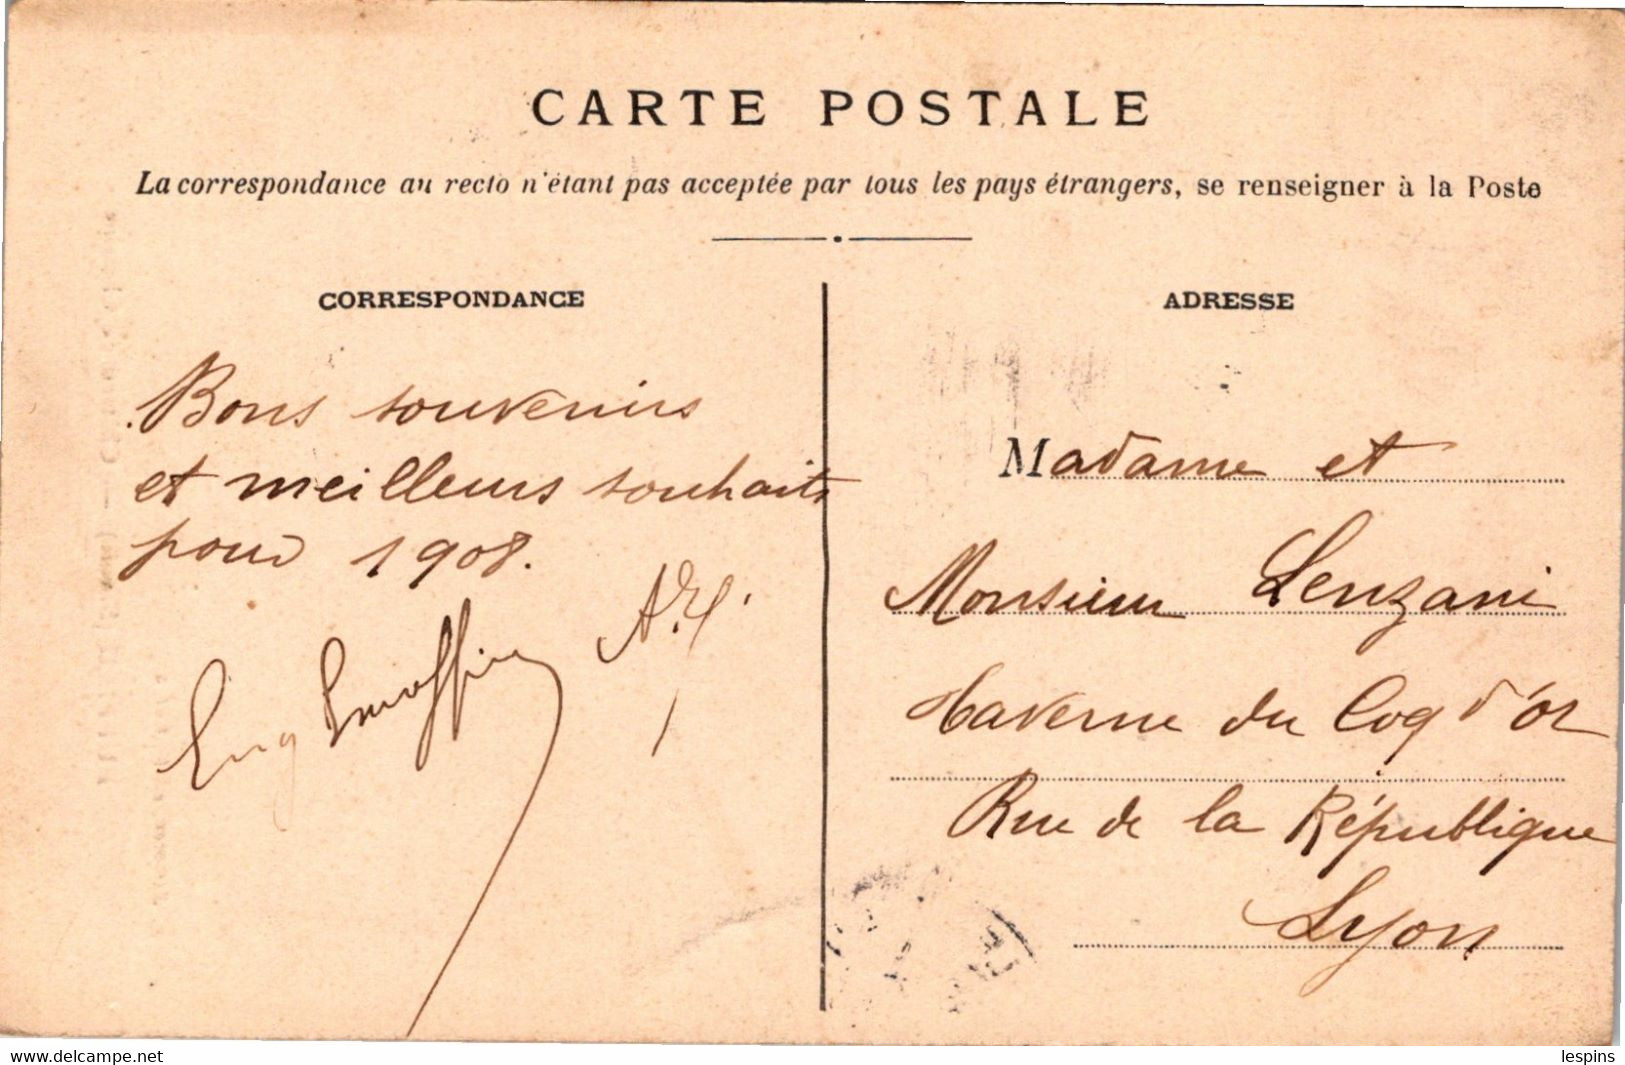 CARTE POSTALE
La correspondance au recto n'étant pas acceptée par tous les pays étrangers, se renseigner à la Poste
CORRESPONDANCE
Bons souvenirs
et meilleurs souhaits
pour 1908.
Eug
ADRESSE
Madame et
Monsieur Lenzani
Taverne du Coq d'or
Rue de la République
Lyon
www.delcampe.net
lespins